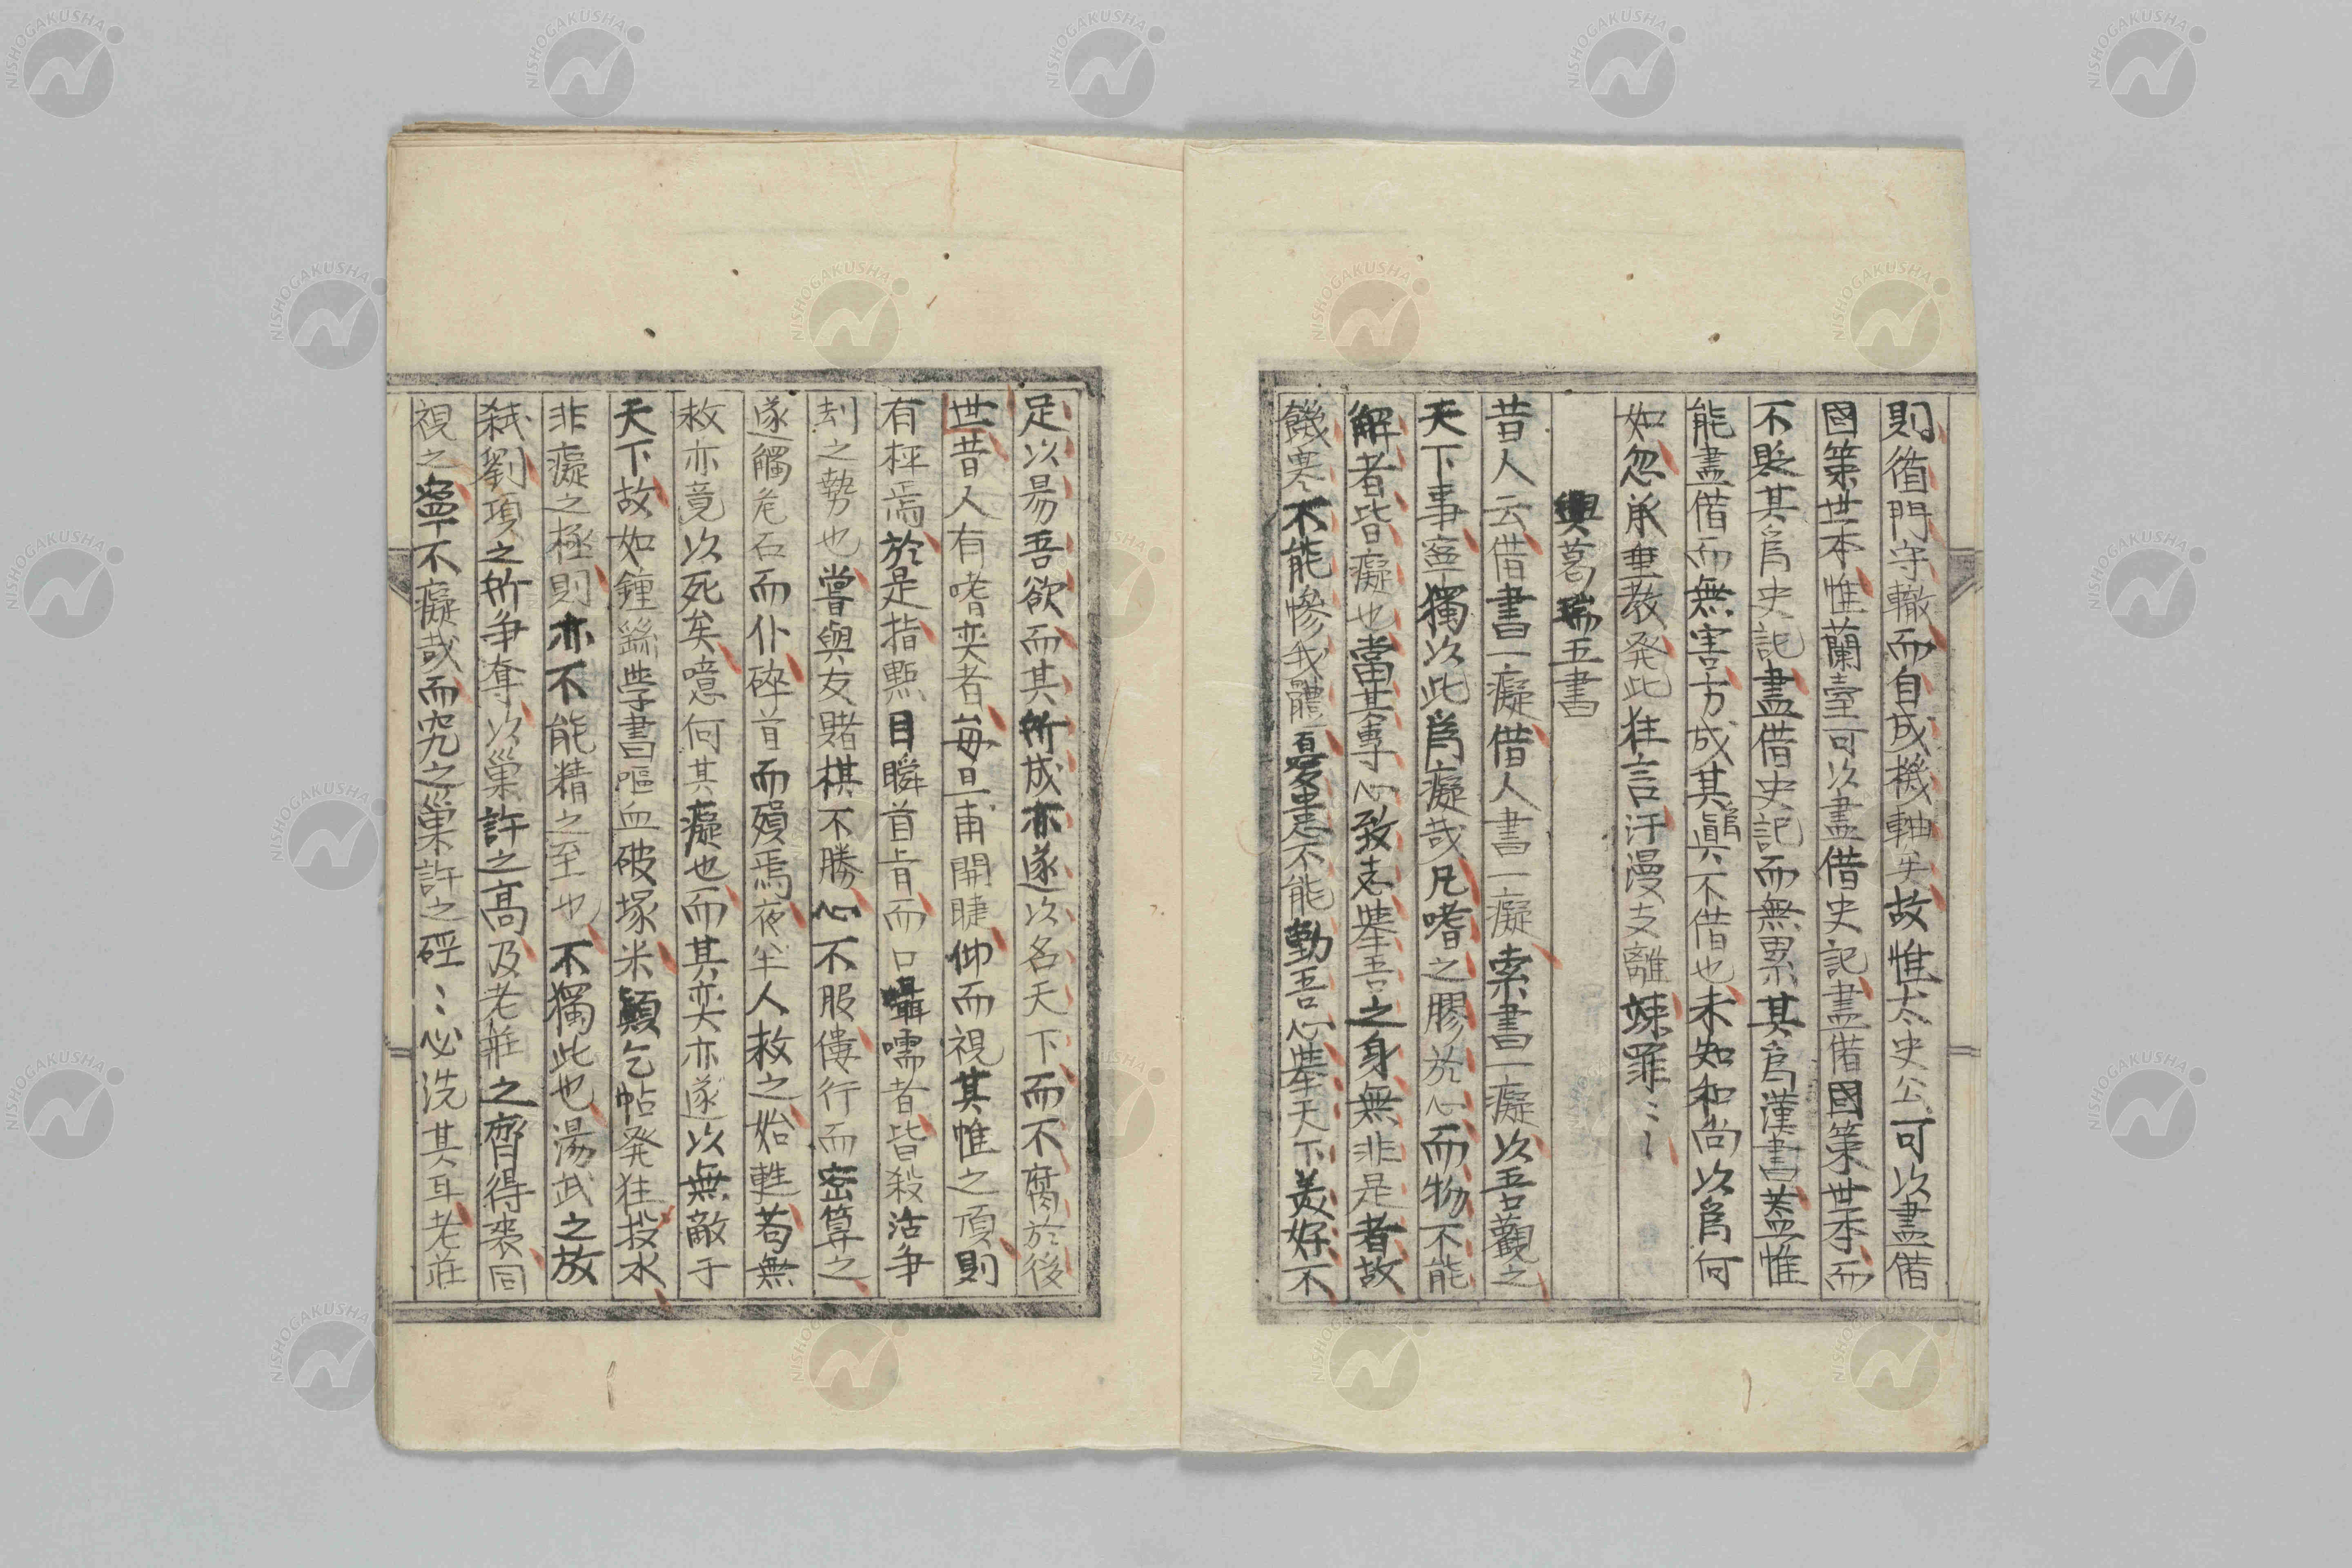 則循門守轍而自成機軸矣故惟太史公可以盡借
國策世本惟蘭臺可以盡借史記盡借國策世本而
不貶其爲史記盡借史記而無累其爲漢書蓋惟
能盡借而無害方成其眞不借也未知和尚以爲何
如忽承垂教発此狂言汗漫支離竦罪〻〻
與葛瑞五書
昔人云借書一癡借人書一癡索書一癡以吾觀之
天下事寧獨以此爲癡哉凡嗜之膠於心而物不能
解者皆癡也當其專心致志舉吾之身無非是者故
饑寒不能慘我體憂患不能動吾心舉天下美好不
足以易吾欲而其所成亦遂以名天下而不腐於後
世昔人有嗜奕者每旦甫開睫仰而視其帷之頂則
有枰焉於是指點目瞬首肯而口囁嚅者皆殺活爭
刦之勢也嘗與友賭棋不勝心不服僂行而密算之
遂觸危石而仆碎首而殞焉夜半人救之始甦苟無
救亦竟以死矣噫何其癡也而其奕亦遂以無敵于
天下故如鍾繇學書嘔血破塚米顛乞帖発狂投水
非癡之極則亦不能精之至也不獨此也湯武之放
弑劉項之所爭奪以巢許之高及老莊之齊得喪同
視之寧不癡哉而究之巢許之硜〻必洗其耳老莊